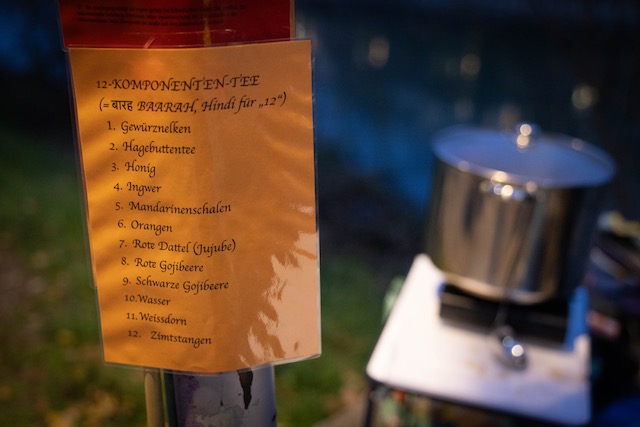 12-KOMPONENTEN-TEE
(= बारह BAARAH, Hindi für „12“)
1. Gewürznelken
2. Hagebuttentee
3. Honig
4. Ingwer
5. Mandarinenschalen
6. Orangen
7. Rote Dattel (Jujube)
8. Rote Gojibeere
9. Schwarze Gojibeere
10. Wasser
11. Weissdorn
12. Zimtstangen